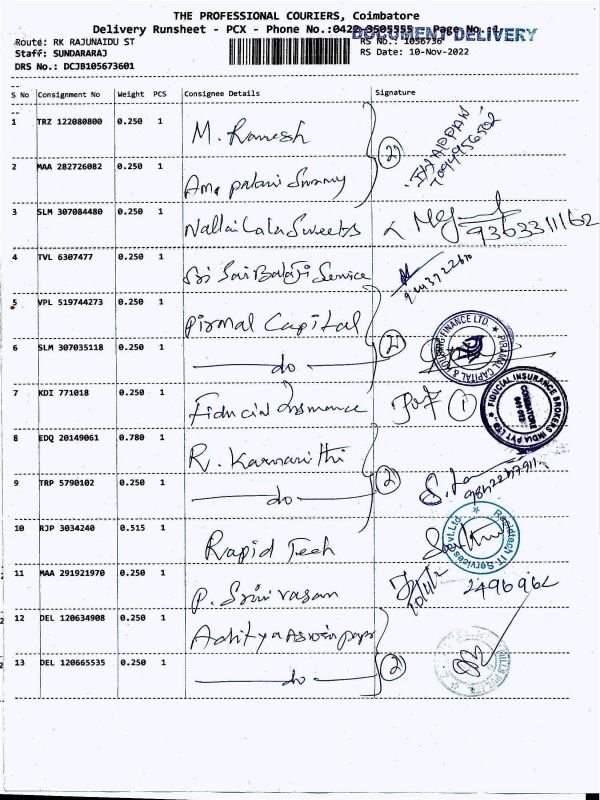 THE PROFESSIONAL COURIERS, Coimbatore
Delivery Runsheet - PCX - Phone No.:0422-3505555 Page No.:1
DOCUMENT DELIVERY
Route: RK RAJUNAIDU ST RS No.: 1056736
Staff: SUNDARARAJ RS Date: 10-Nov-2022
DRS No.: DCJB105673601
S No Consignment No Weight PCS Consignee Details Signature
1 TRZ 122080800 0.250 1 M. Ramesh 2
7094956502
2 MAA 282726082 0.250 1 Swamy
3 SLM 307084480 0.250 1 Nallai Lala Sweets 9363311162
4 TVL 6307477 0.250 1 Sri Sai Balaji Service
5 VPL 519744273 0.250 1 Pirmal Capital 2
PIRAMAL CAPITAL & HOUSING FINANCE LTD.
6 SLM 307035118 0.250 1 do
7 KDI 771018 0.250 1 Fiducial Insurance 1
FIDUCIAL INSURANCE BROKERS INDIA PVT LTD. COIMBATORE
8 EDQ 20149061 0.780 1 R. Karunanithi 2
9 TRP 5790102 0.250 1 do
10 RJP 3034240 0.515 1 Rapid Tech
Rapidtech IT Services Pvt.Ltd.
11 MAA 291921970 0.250 1 P. Srinivasan 10/11/22 2496962
12 DEL 120634908 0.250 1 Aditya Aswin paper 2
13 DEL 120665535 0.250 1 do